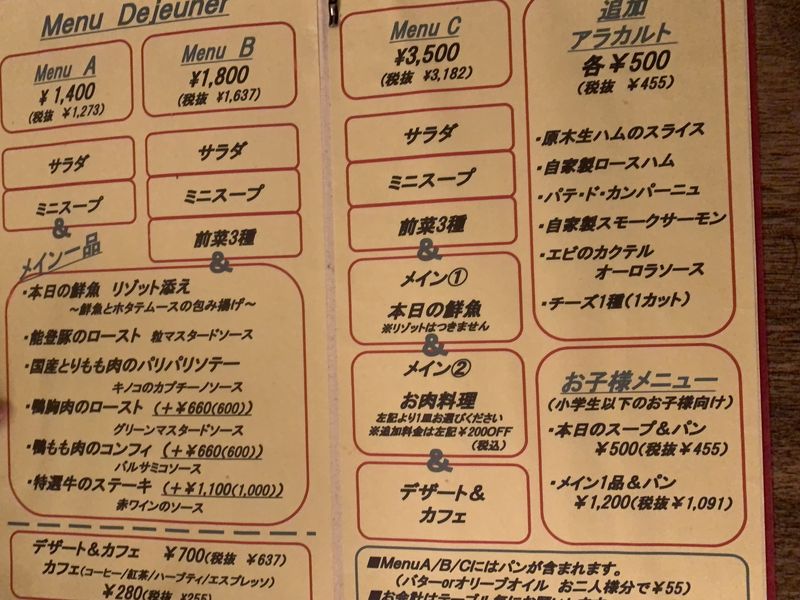 Menu Dejeuner
Menu A
¥1,400
(税抜 ¥1,273)
サラダ
ミニスープ
&
メイン一品
Menu B
¥1,800
(税抜 ¥1,637)
サラダ
ミニスープ
前菜3種
&
・本日の鮮魚 リゾット添え
～鮮魚とホタテムースの包み揚げ～
・能登豚のロースト 粒マスタードソース
・国産とりもも肉のパリパリソテー
キノコのカプチーノソース
・鴨胸肉のロースト (+¥660(600))
グリーンマスタードソース
・鴨もも肉のコンフィ (+¥660(600))
バルサミコソース
・特選牛のステーキ (+¥1,100(1,000))
赤ワインのソース
デザート&カフェ ¥700(税抜 ¥637)
カフェ(コーヒー/紅茶/ハーブティ/エスプレッソ)
¥280(税抜 ¥255)
Menu C
¥3,500
(税抜 ¥3,182)
サラダ
ミニスープ
前菜3種
&
メイン①
本日の鮮魚
※リゾットはつきません
&
メイン②
お肉料理
左記より1皿お選びください
※追加料金は左記¥200OFF
(税込)
&
デザート&
カフェ
追加
アラカルト
各¥500
(税抜 ¥455)
・原木生ハムのスライス
・自家製ロースハム
・パテ・ド・カンパーニュ
・自家製スモークサーモン
・エビのカクテル
オーロラソース
・チーズ1種(1カット)
お子様メニュー
(小学生以下のお子様向け)
・本日のスープ&パン
¥500(税抜¥455)
・メイン1品&パン
¥1,200(税抜¥1,091)
■MenuA/B/Cにはパンが含まれます。
(バターorオリーブオイル お二人様分で¥55)
■お会計はテーブル毎にお願い